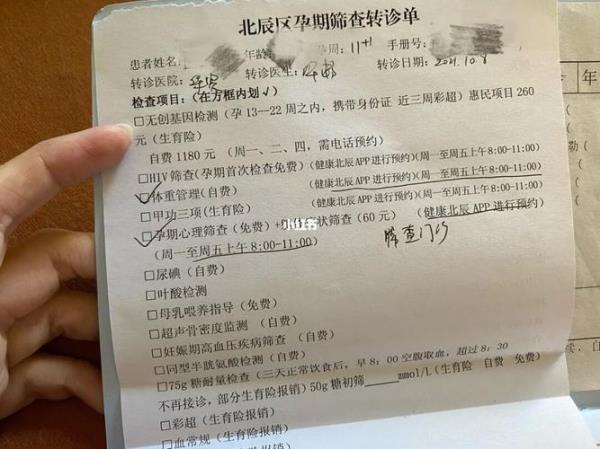 北辰区孕期筛查转诊单
患者姓名 年龄 孕周: 11+1 手册号
转诊医院: 转诊医生: 转诊日期: 2021.10.8
检查项目:（在方框内划√）
□无创基因检测（孕13—22周之内，携带身份证 近三周彩超）惠民项目260
元（生育险）
自费1180元 （周一、二、四，需电话预约）
□HIV筛查(孕期首次检查免费) (健康北辰APP进行预约)(周一至周五上午8:00-11:00)
□体重管理(自费) (健康北辰APP进行预约)(周一至周五上午8:00-11:00)
□甲功三项(生育险) (健康北辰APP进行预约)(周一至周五上午8:00-11:00)
□孕期心理筛查（免费）+ 状筛查（60元）(健康北辰APP进行预约)
(周一至周五上午8:00-11:00) 筛查门诊
小红书
□尿碘（自费）
□叶酸检测
□母乳喂养指导（免费）
□超声骨密度监测 （自费）
□妊娠期高血压疾病筛查 （自费）
□同型半胱氨酸检测（自费）
□75g糖耐量检查（三天正常饮食后，早8：00空腹取血，超过8：30
不再接诊，部分生育险报销）50g糖初筛____mmol/L(生育险 自费 免费)
□彩超（生育险报销）
□血常规（生育险报销）